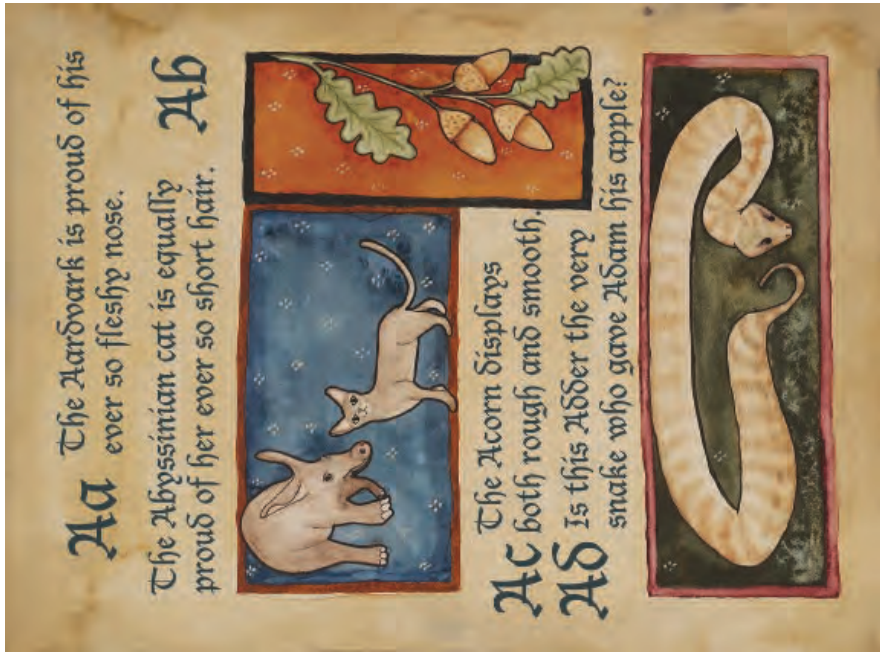 Aa The Aardvark is proud of his
ever so fleshy nose.
The Abyssinian cat is equally Ab
proud of her ever so short hair.
Ac The Acorn displays
both rough and smooth.
Ad Is this Adder the very
snake who gave Adam his apple?